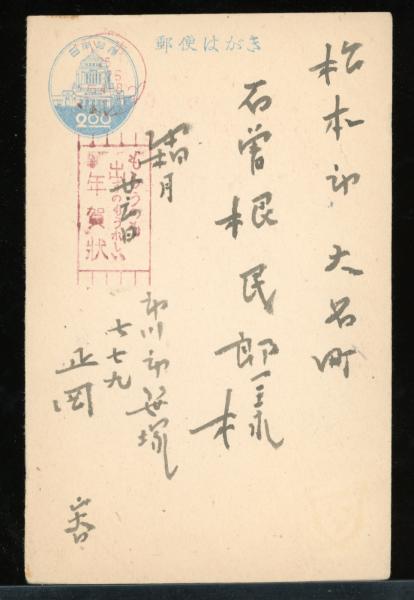 郵便はがき
日本郵便
2.00
年賀状
松本市大名町
石曽根民郎様
廿六日
市川市笹塚
七七九
正岡
容